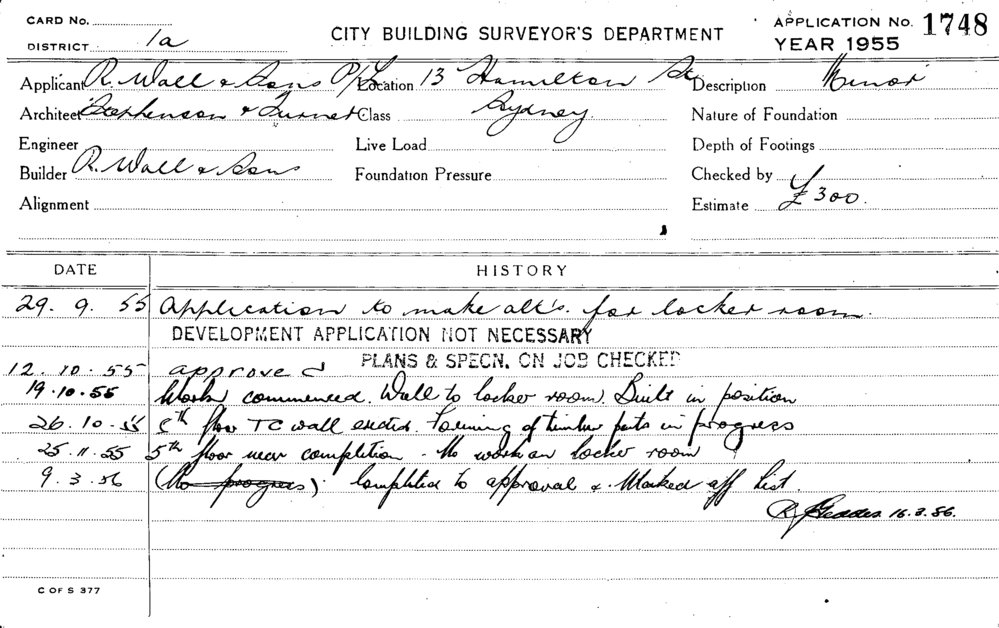 CARD NO.
CITY BUILDING SURVEYOR'S DEPARTMENT
APPLICATION NO. 1748
DISTRICT 1a
YEAR 1955
Applicant R. Wall & Sons P/L Location 13 Hamilton St. Description Minor
Architect Stephenson & Turner Class Sydney. Nature of Foundation
Engineer Live Load Depth of Footings
Builder R. Wall & Sons Foundation Pressure Checked by
Alignment Estimate £300.
DATE HISTORY
29. 9. 55 Application to make alt's. for locker room.
DEVELOPMENT APPLICATION NOT NECESSARY
PLANS & SPECN. ON JOB CHECKED
12. 10. 55 approved
19.10.55 Work commenced. Wall to locker room. Built in position
26. 10. 55 5th floor T C wall erected. Forming of timber parts in progress
25. 11. 55 5th floor near completion - No work on locker room
9. 3. 56 (No progress). Completed to approval & Marked off List.
R. Geddes 16.3.56.
C OF S 377